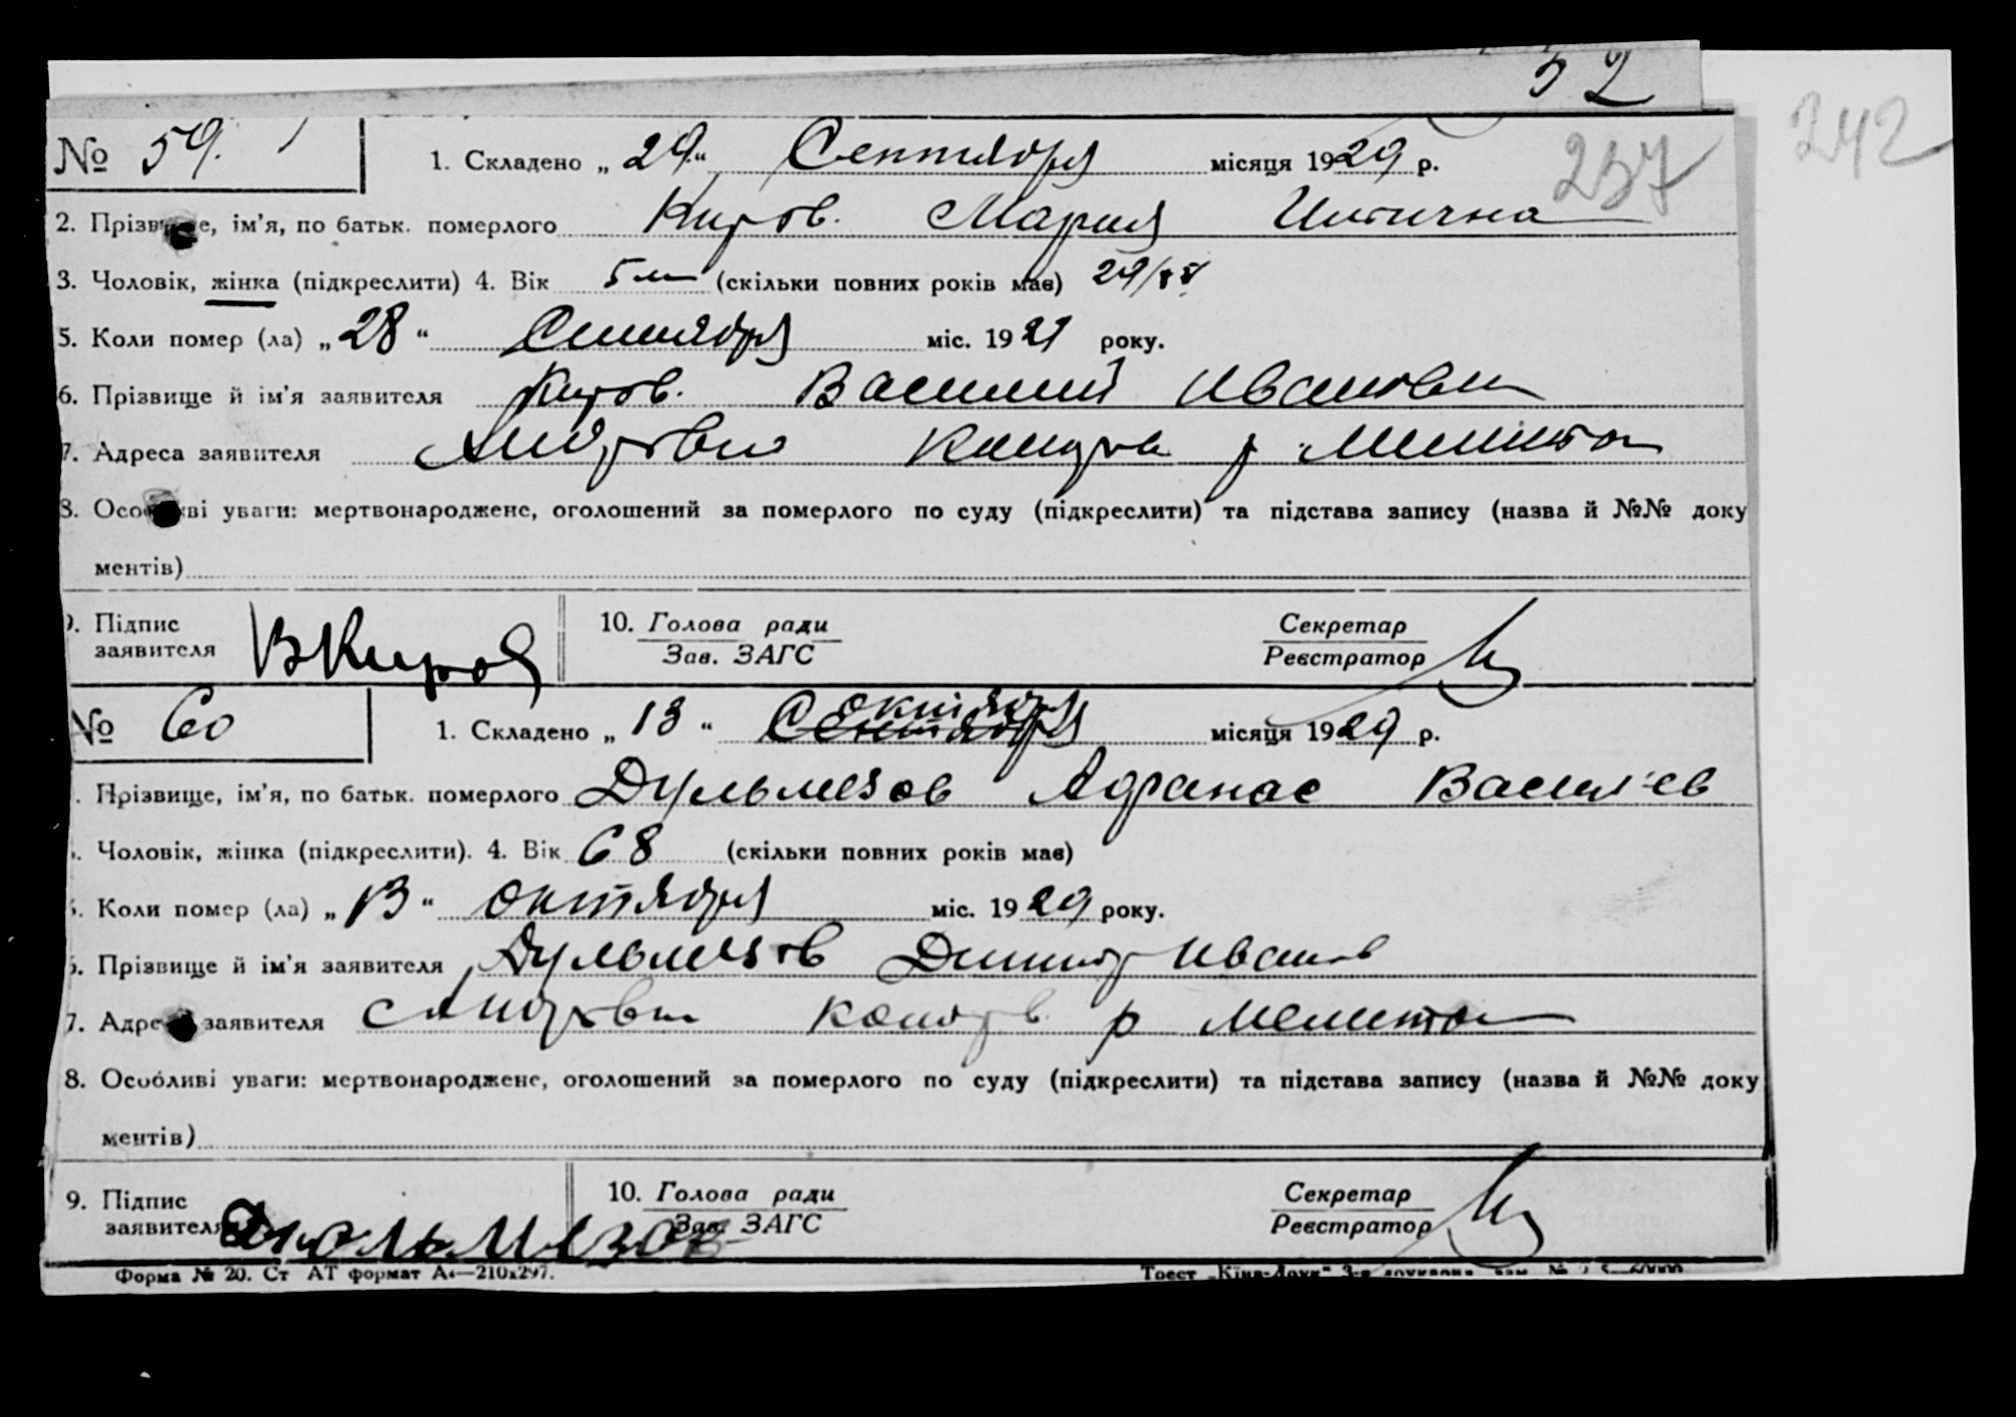 52
242
№ 59. 1. Складено „29“ Сентября місяця 1929 р. 237
2. Прізвище, ім'я, по батьк. померлого Киров. Мария
3. Чоловік, жінка (підкреслити) 4. Вік 5 м (скільки повних років має)
5. Коли помер (ла) „28“ Сентября міс. 1929 року.
6. Прізвище й ім'я заявителя Киров. Василий Иванович
7. Адреса заявителя р Мелитоп
8. Особливі уваги: мертвонароджене, оголошений за померлого по суду (підкреслити) та підстава запису (назва й №№ доку
ментів)
9. Підпис заявителя ВКиров 10. Голова ради Зав. ЗАГС Секретар Реєстратор
№ 60 1. Складено „13“ Сентября октября місяця 1929 р.
Прізвище, ім'я, по батьк. померлого Дульмезов Афанас Васильев
Чоловік, жінка (підкреслити). 4. Вік 68 (скільки повних років має)
Коли помер (ла) „13“ октября міс. 1929 року.
Прізвище й ім'я заявителя Дульмезов Дмитр Иванов
7. Адреса заявителя р Мелитоп
8. Особливі уваги: мертвонароджене, оголошений за померлого по суду (підкреслити) та підстава запису (назва й №№ доку
ментів)
9. Підпис заявителя 10. Голова ради Зав. ЗАГС Секретар Реєстратор
Форма № 20. Ст АТ формат А4—210x297. Трест „Київ-Друк“